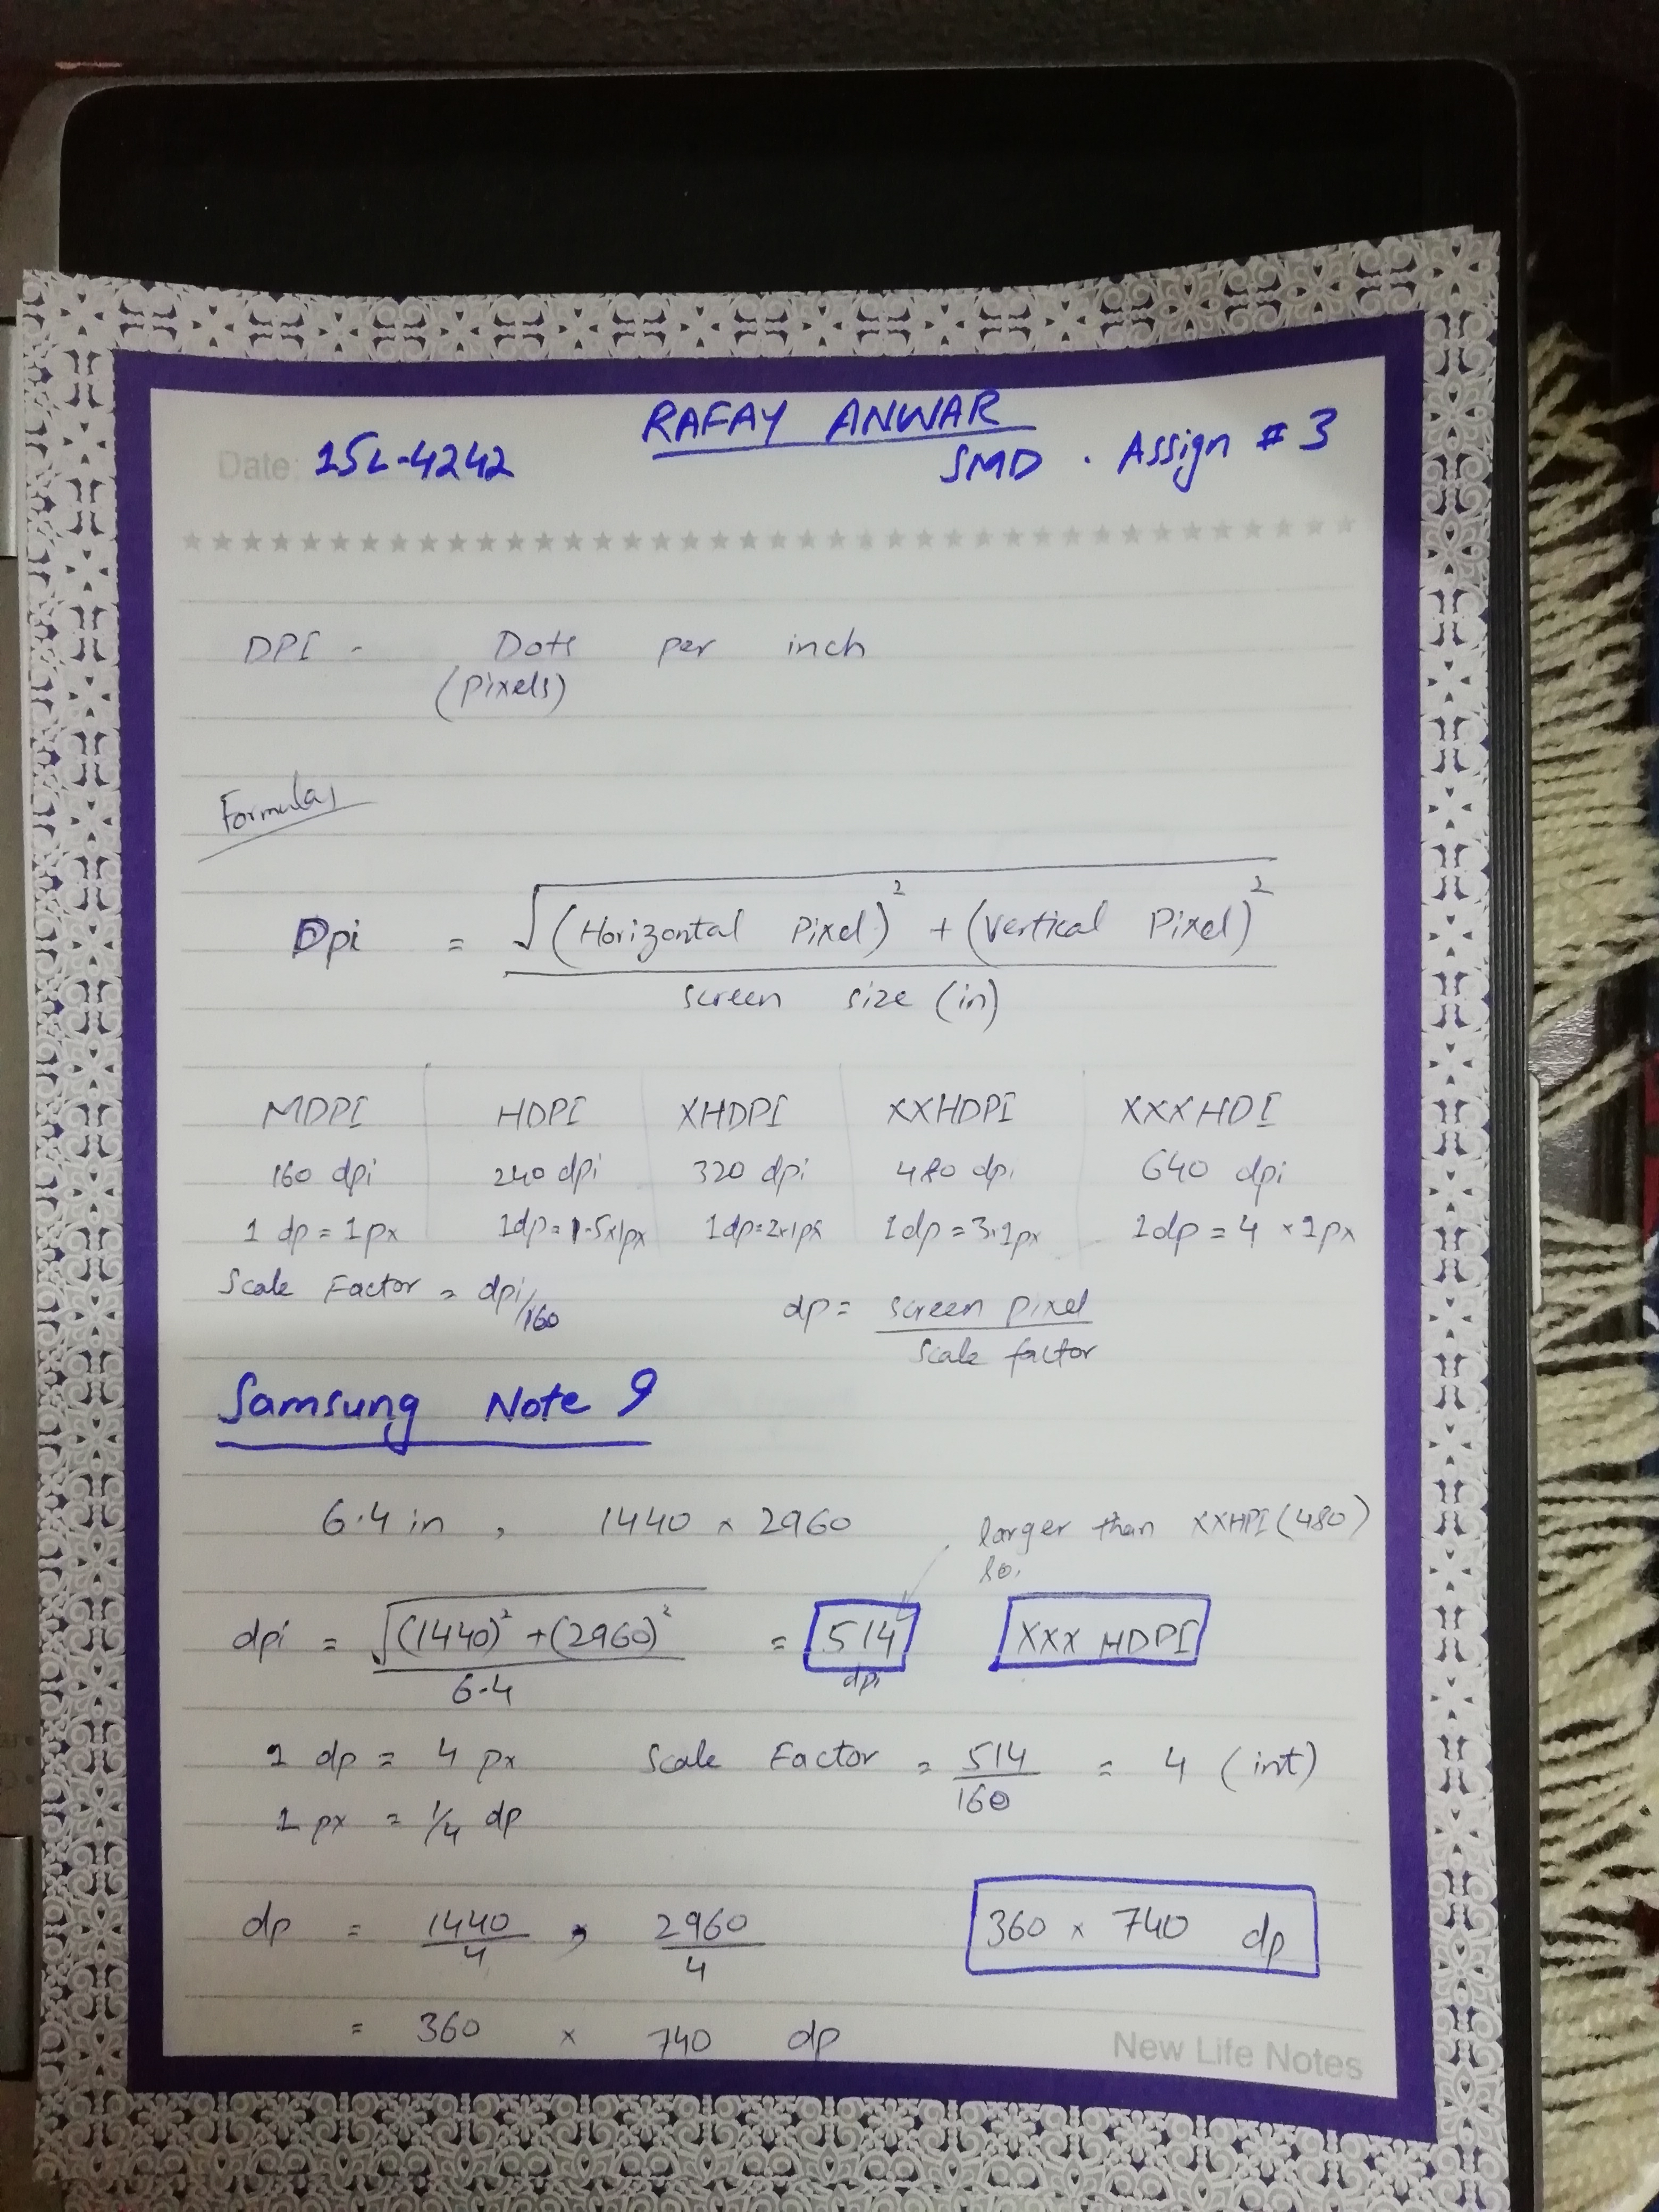 RAFAY ANWAR
Date: 15L-4242 SMD . Assign # 3
DPI - Dots per inch
(pixels)
Formulas
Dpi = √(Horizontal Pixel)² + (Vertical Pixel)²
screen size (in)
MDPI HDPI XHDPI XXHDPI XXXHDI
160 dpi 240 dpi 320 dpi 480 dpi 640 dpi
1 dp = 1 px 1dp = 1.5x1px 1dp=2x1px 1dp=3x1px 1dp = 4 x 1px
Scale Factor = dpi/160 dp = screen pixel
scale factor
Samsung Note 9
6.4 in , 1440 x 2960 larger than XXHPI (480)
so,
dpi = √(1440)² + (2960)² = 514 XXX HDPI
6.4 dpi
1 dp = 4 px Scale Factor = 514 = 4 (int)
160
1 px = 1/4 dp
dp = 1440 , 2960 360 x 740 dp
4 4
= 360 x 740 dp
New Life Notes